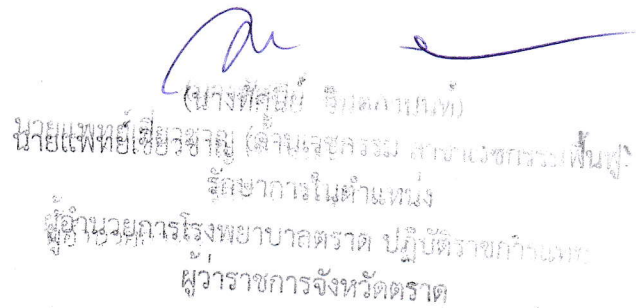 (นางทัศนีย์
นายแพทย์เชี่ยวชาญ (ด้านเวชกรรม สาขาเวชกรรมฟื้นฟู)
รักษาการในตำแหน่ง
ผู้อำนวยการโรงพยาบาลตราด ปฏิบัติราชการแทน
ผู้ว่าราชการจังหวัดตราด